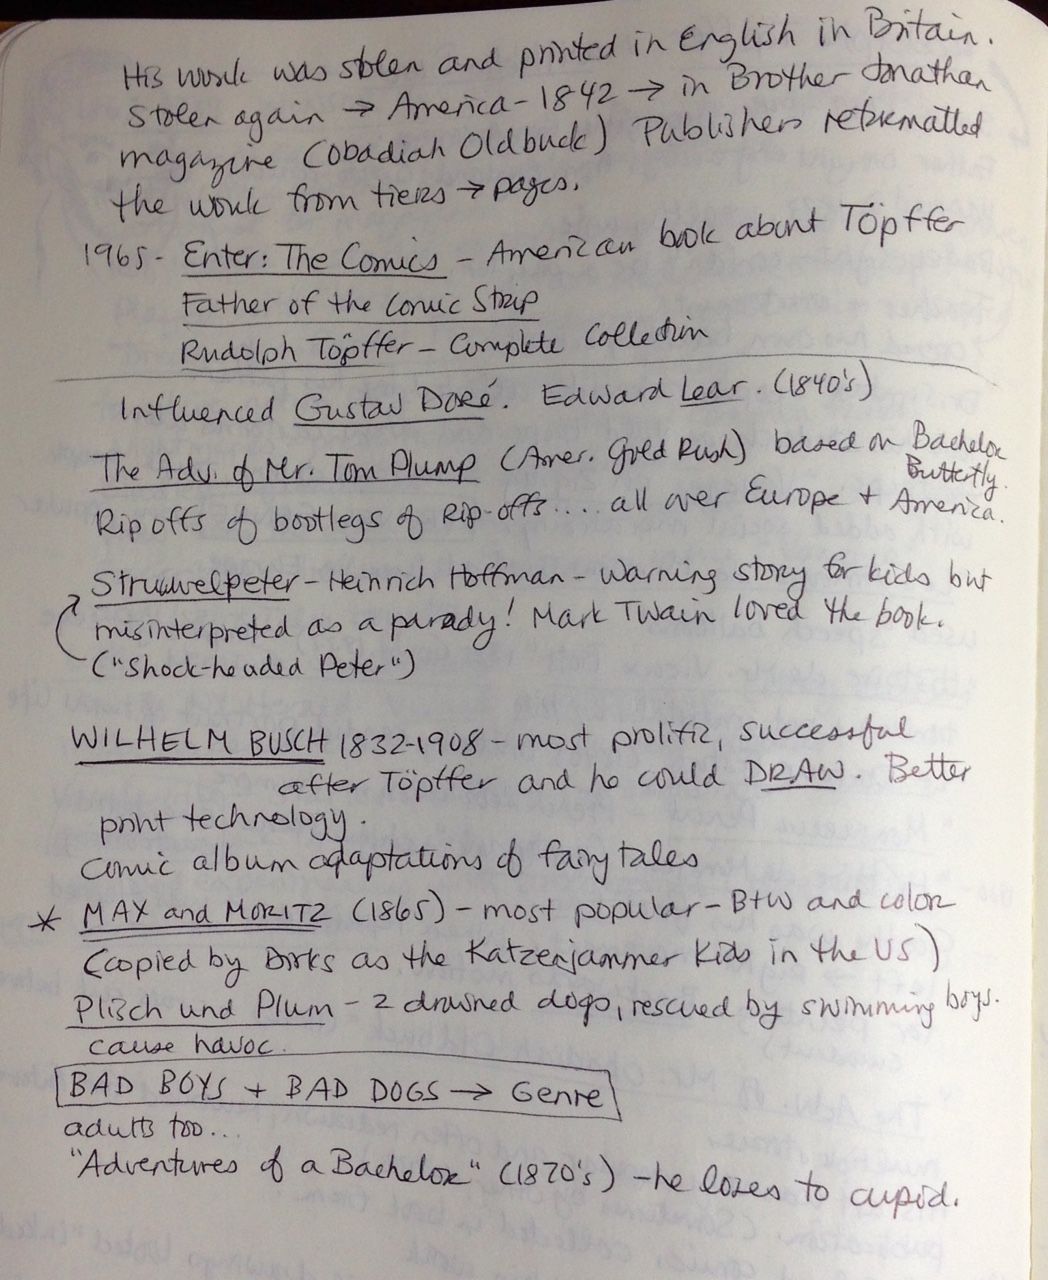 His work was stolen and printed in English in Britain.
Stolen again → America - 1842 → in Brother Jonathan
magazine (Obadiah Oldbuck) Publishers reformatted
the work from tiers → pages.
1965 - Enter: The Comics - American book about Töpffer
Father of the Comic Strip
Rudolph Töpffer - Complete Collection
Influenced Gustav Doré. Edward Lear. (1840's)
The Adv. of Mr. Tom Plump (Amer. Gold Rush) based on Bachelor
Butterfly.
Rip offs of bootlegs of Rip-offs.... all over Europe + America.
Struwelpeter - Heinrich Hoffman - Warning story for kids but
misinterpreted as a parady! Mark Twain loved the book.
("Shock-headed Peter")
WILHELM BUSCH 1832-1908 - most prolific, successful
after Töpffer and he could DRAW. Better
print technology.
Comic album adaptations of fairy tales
* MAX and MORITZ (1865) - most popular - B+W and color
(copied by Dirks as the Katzenjammer Kids in the US)
Plisch und Plum - 2 drowned dogs, rescued by swimming boys.
cause havoc.
BAD BOYS + BAD DOGS → Genre
adults too...
"Adventures of a Bachelor" (1870's) - he loses to cupid.